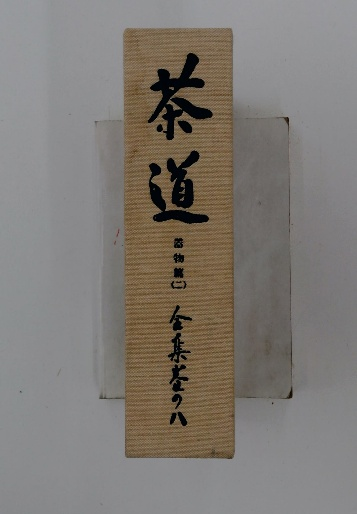 茶道
器物篇(二)
全集巻の八